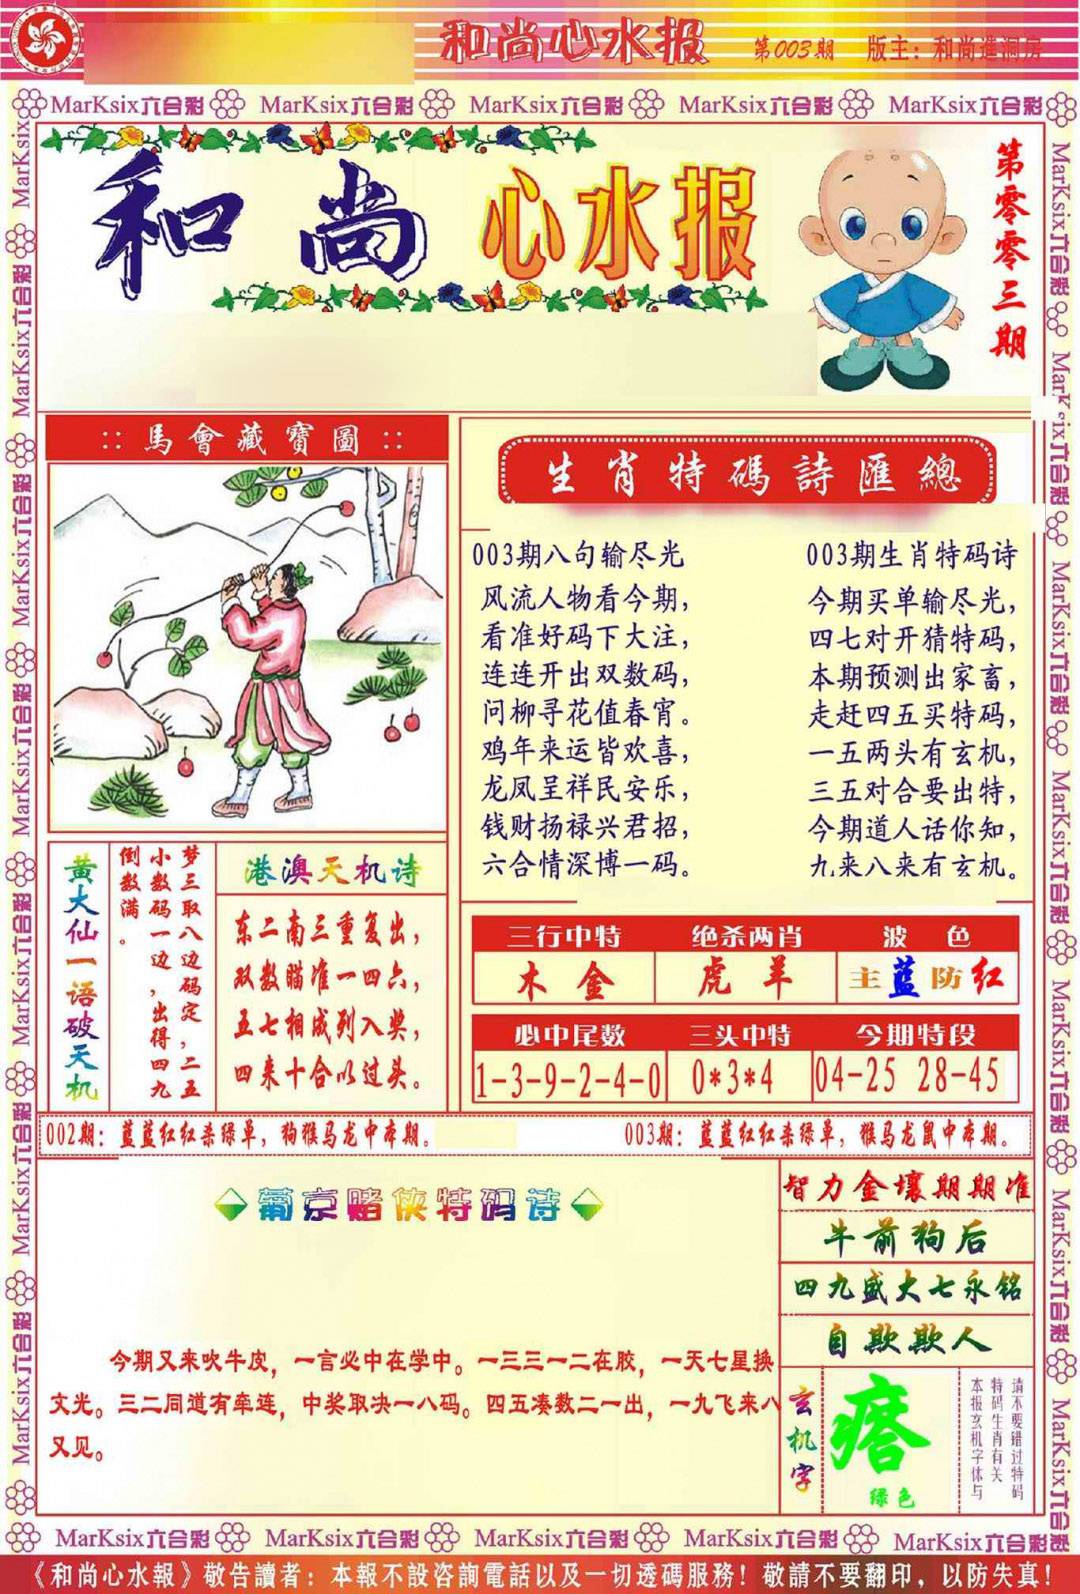 和尚心水报 第003期 版主：和尚進洞房
MarKsix六合彩 MarKsix六合彩 MarKsix六合彩 MarKsix六合彩 MarKsix六合彩
和尚心水报
第零零三期
::馬會藏寶圖::
生肖特碼詩匯總
003期八句输尽光
风流人物看今期，
看准好码下大注，
连连开出双数码，
问柳寻花值春宵。
鸡年来运皆欢喜，
龙凤呈祥民安乐，
钱财扬禄兴君招，
六合情深博一码。
003期生肖特码诗
今期买单输尽光，
四七对开猜特码，
本期预测出家畜，
走赶四五买特码，
一五两头有玄机，
三五对合要出特，
今期道人话你知，
九来八来有玄机。
黄大仙一语破天机
梦三取八边码定，二五
小数码一边，出得四九
倒数满。
港澳天机诗
东二南三重复出，
双数瞄准一四六，
五七相成列入奖，
四来十合以过头。
三行中特 绝杀两肖 波色
木金 虎羊 主蓝防红
必中尾数 三头中特 今期特段
1-3-9-2-4-0 0*3*4 04-25 28-45
002期：蓝蓝红红杀绿单，狗猴马龙中本期。
003期：蓝蓝红红杀绿单，猴马龙鼠中本期。
葡京赌侠特码诗
今期又来吹牛皮，一言必中在学中。一三三一二在胶，一天七星换
文光。三二同道有牵连，中奖取决一八码。四五凑数二一出，一九飞来八
又见。
智力金壤期期准
牛前狗后
四九盛大七永铭
自欺欺人
玄机字
瘩
绿色
请不要错过特码
特码生肖有关
本报玄机字体与
MarKsix六合彩 MarKsix六合彩 MarKsix六合彩 MarKsix六合彩 MarKsix六合彩
《和尚心水報》敬告讀者：本報不設咨詢電話以及一切透碼服務！敬請不要翻印，以防失真！